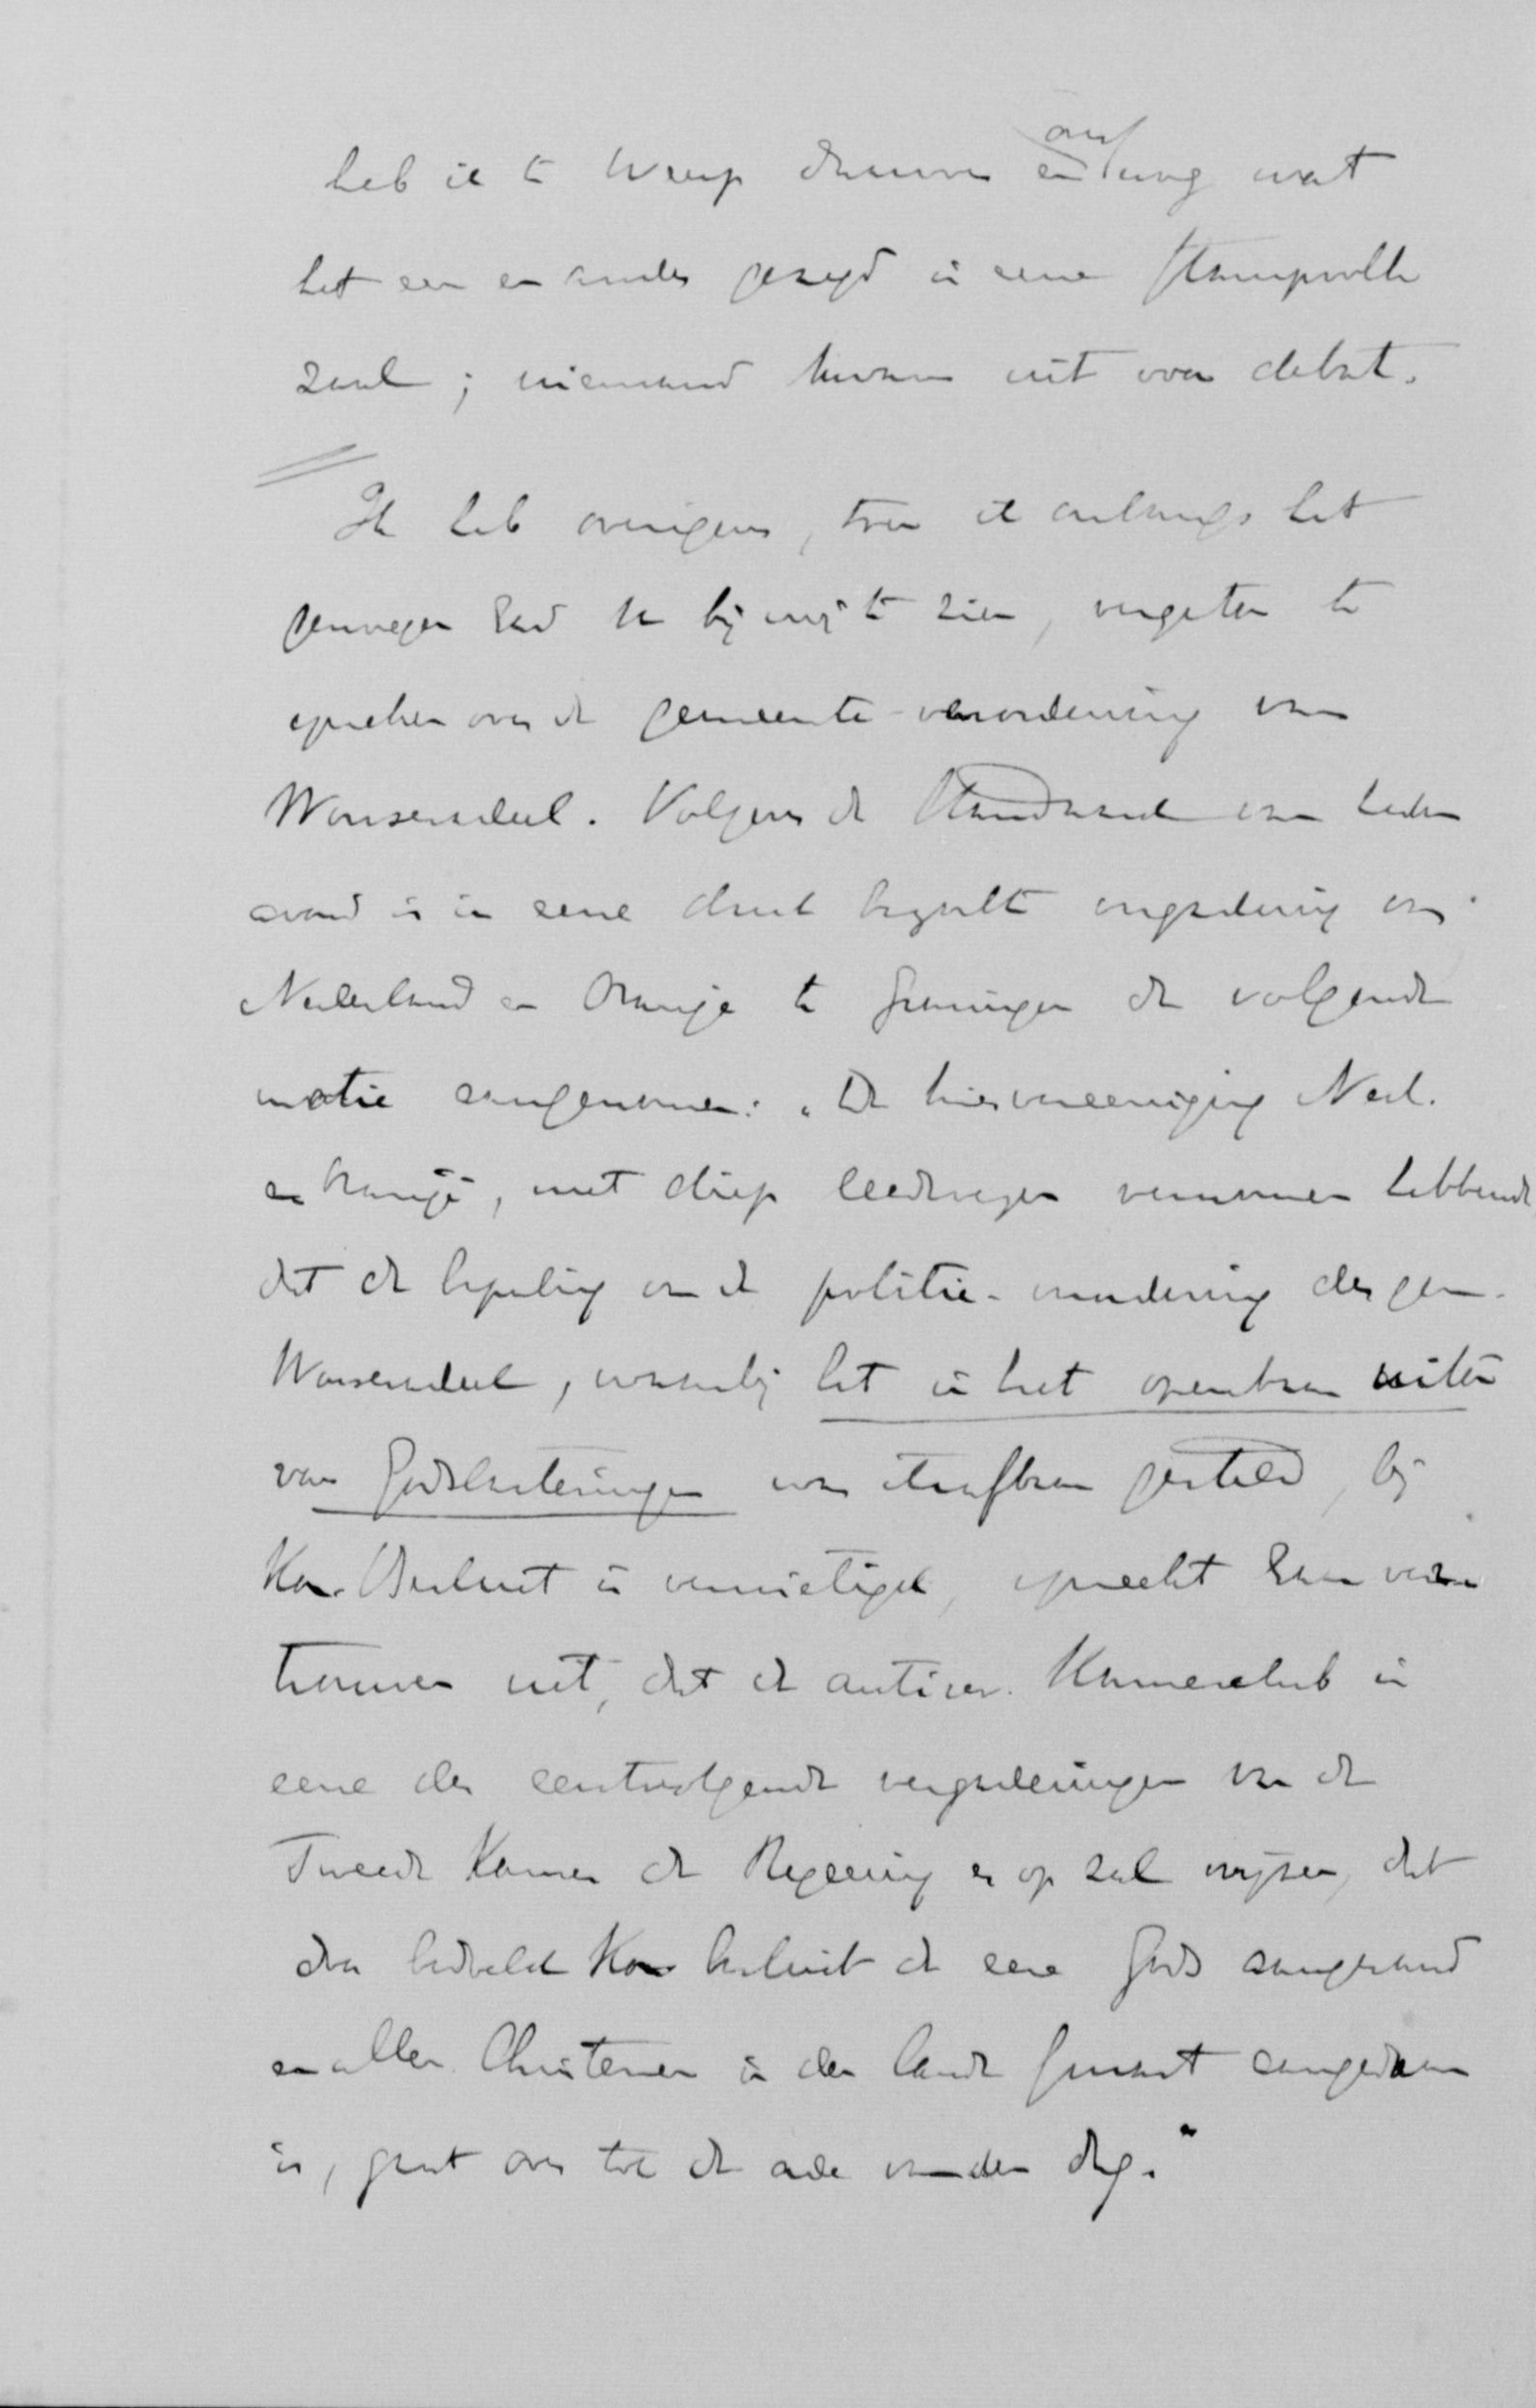 heb ik te Weesp daarom wat
het een en ander gezegd in eene stampvolle
zaal; niemand kwam uit voor debat.
Ik heb overigens, toen ik onlangs het
genoegen had U bij mij te zien, vergeten te
spreken over de gemeente-verordening van
Wonseradeel. Volgens de Standaard van heden
avond is in eene druk bezochte vergadering van
Nederland en Oranje te Groningen de volgende
motie aangenomen: „De kiesvereeniging Ned.
en Oranje, met diep leedwezen vernomen hebbende
dat de bepaling van de politie-verordening der gem.
Wonseradeel, waarbij het in het openbaar uiten
van Godslasteringen was strafbaar gesteld, bij
Kon. Besluit is vernietigd, spreekt haar ver-
trouwen uit, dat de antirev. Kamerclub in
eene der eerstvolgende vergaderingen van de
Tweede Kamer de Regeering er op zal wijzen, dat
door bedoeld Kon. besluit de eere Gods aangerand
en allen Christenen in den lande smart aangedaan
is, gaat over tot de orde van den dag."